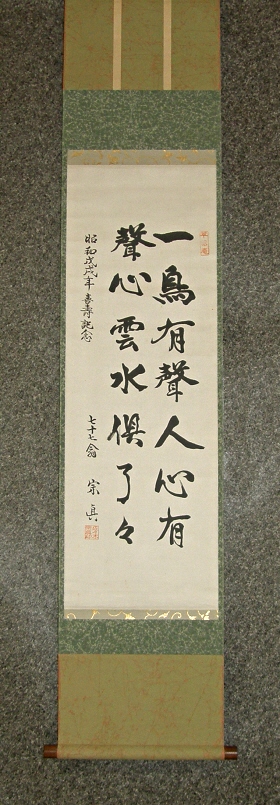 一鳥有聲人心有
聲心雲水倶了々
昭和戊戌年喜壽記念
七十七翁 宗真